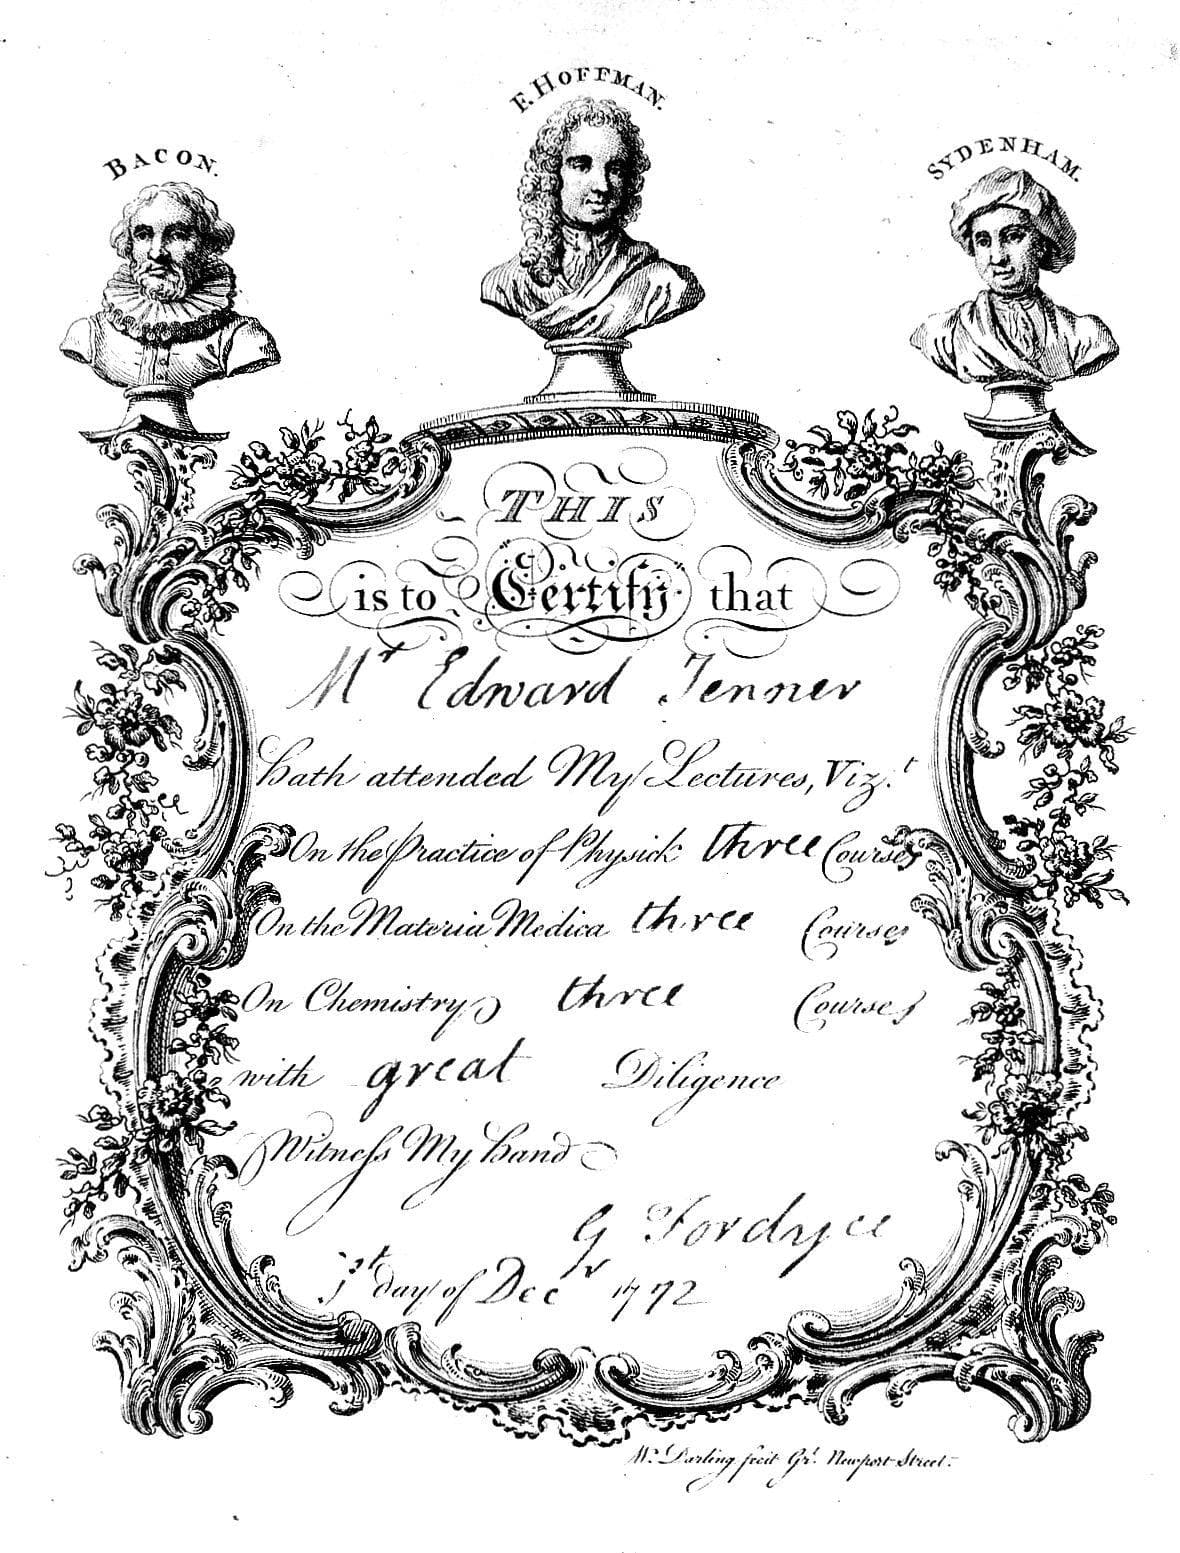 BACON.
F. HOFFMAN.
SYDENHAM.
THIS
is to Certify that
Mr Edward Jenner
hath attended My Lectures, Vizt.
On the Practice of Physick three Courses
On the Materia Medica three Courses
On Chemistry three Courses
with great Diligence
Witness My hand
G Fordyce
1st day of Decr 1772
W. Darling fecit Gt. Newport Street.